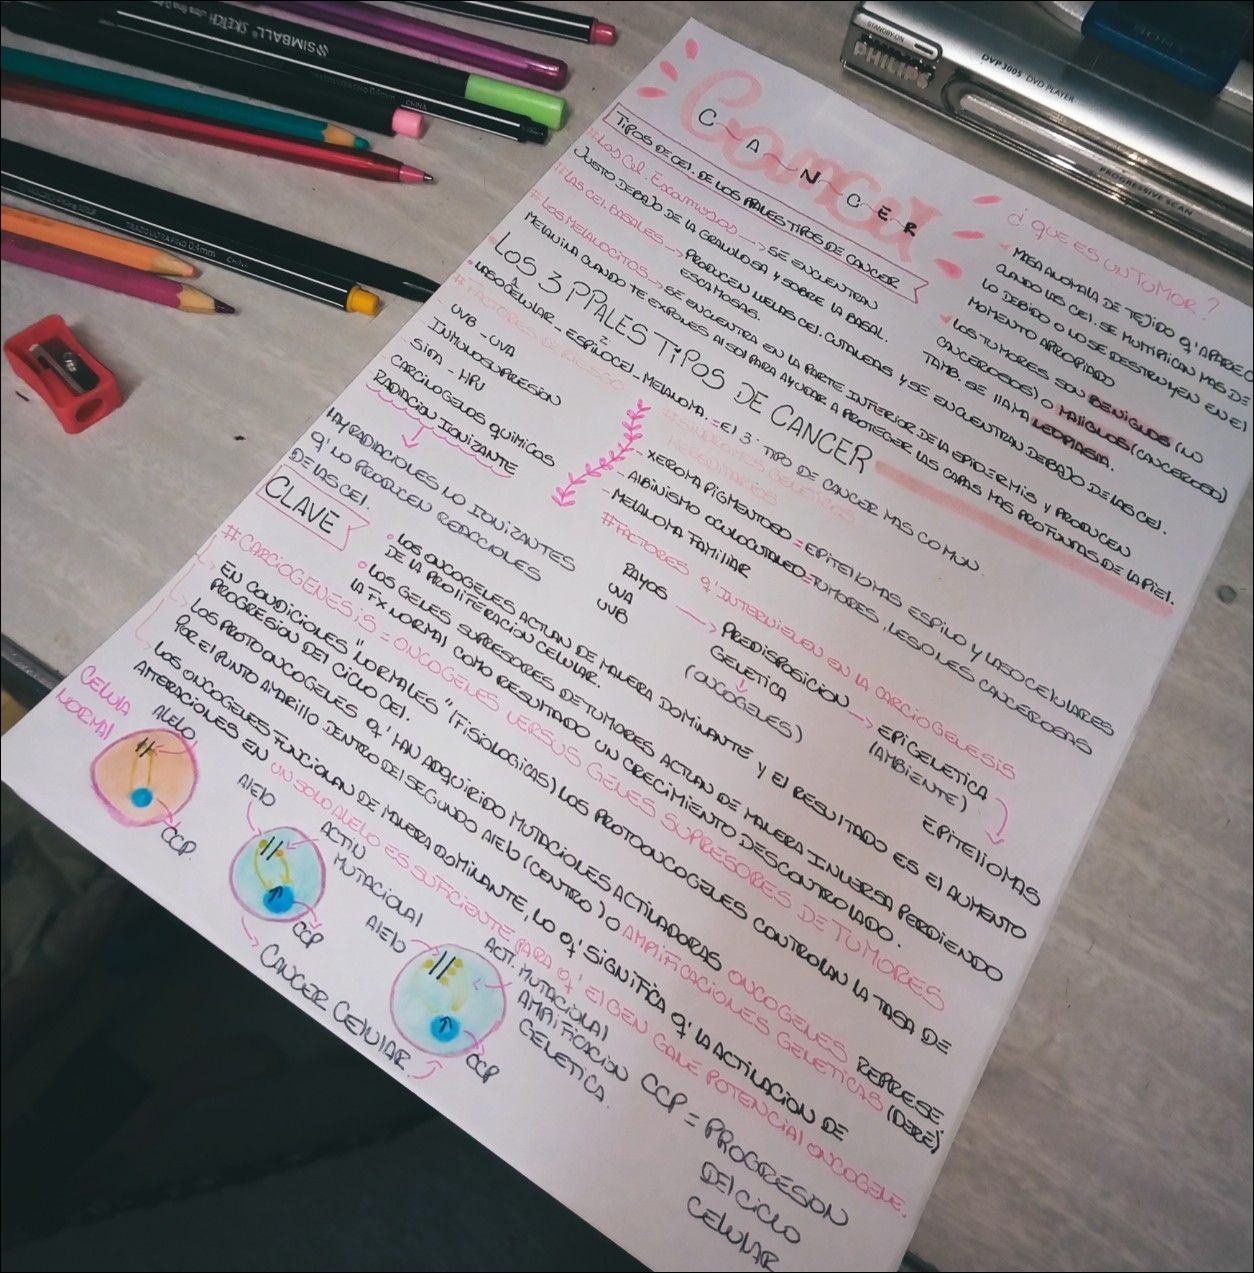 SIMBALL SKETCH
CHINA
TRAZO ULTRA FINO 0.4mm
CHINA
STANDBY-ON
PHILIPS
DVP3005 DVD PLAYER
PROGRESSIVE SCAN
SONY
Cancer
C ~ A ~ N ~ C ~ E ~ R
TIPOS DE CEL. DE LOS PPALES TIPOS DE CANCER
#LAS CEL. ESCAMOSAS → SE ENCUENTRAN
JUSTO DEBAJO DE LA GRANULOSA Y SOBRE LA BASAL.
#LAS CEL. BASALES → PRODUCEN NUEVAS CEL. CUTANEAS Y SE ENCUENTRAN DEBAJO DE LAS CEL.
ESCAMOSAS.
#LOS MELANOCITOS → SE ENCUENTRA EN LA PARTE INFERIOR DE LA EPIDERMIS Y PRODUCEN
MELANINA CUANDO TE EXPONES AL SOL PARA AYUDAR A PROTEGER LAS CAPAS MAS PROFUNDAS DE LA PIEL.
¿QUE ES UN TUMOR?
MASA ANOMALA DE TEJIDO Q' APARECE
CUANDO LAS CEL. SE MULTIPLICAN MAS DE
LO DEBIDO O NO SE DESTRUYEN EN EL
MOMENTO APROPIADO
LOS TUMORES SON BENIGNOS (NO
CANCEROSOS) O MALIGNOS (CANCEROSO)
TAMB. SE LLAMA NEOPLASIA.
LOS 3 PPALES TIPOS DE CANCER
BASOCELULAR - ESPINOCEL - MELANOMA. = El 3° TIPO DE CANCER MAS COMUN.
#FACTORES DE RIESGO
UVB - UVA
INMUNOSUPRESION
SIDA - HPV
CARCINOGENOS QUIMICOS
RADIACION IONIZANTE
HAY RADIACIONES NO IONIZANTES
Q' NO PRODUCEN REACCIONES
DE LAS CEL.
#SINDROMES GENETICOS
HEREDITARIOS
- XEROMA PIGMENTOSO = EPITELIOMAS ESPINO Y BASOCELULARES
- ALBINISMO OCULOCUTANEO = TUMORES, LESIONES CANCEROSAS
- MELANOMA FAMILIAR
#FACTORES Q' INTERVIENEN EN LA CARCIOGENESIS
RAYOS
UVA
UVB
→ PREDISPOSICION
GENETICA
(ONCOGENES)
→ EPIGENETICA
(AMBIENTE)
EPITELIOMAS
CLAVE
• LOS ONCOGENES ACTUAN DE MANERA DOMINANTE Y EL RESULTADO ES El AUMENTO
DE LA PROLITERACION CELULAR.
• LOS GENES SUPRESORES DE TUMORES ACTUAN DE MANERA INVERSA PERDIENDO
LA FX NORMAL COMO RESULTADO UN CRECIMIENTO DESCONTROLADO.
#CARCIOGENESIS = ONCOGENES VERSUS GENES SUPRESORES DE TUMORES
EN CONDICIONES "NORMALES" (FISIOLOGICAS) LOS PROTOONCOGENES CONTROLAN LA TASA DE
PROGRESION DEL CICLO CEL.
LOS PROTOONCOGENES Q' HAN ADQUIRIDO MUTACIONES ACTIVADORAS ONCOGENES REPRESE.
POR EL PUNTO AMARILLO DENTRO DEL SEGUNDO ALELO (CENTRO) O AMPLIFICACIONES GENETICAS (DERE)
LOS ONCOGENES FUNCIONAN DE MANERA DOMINANTE, LO Q' SIGNIFICA Q' LA ACTIVACION DE
ALTERACIONES EN UN SOLO ALELO ES SUFICIENTE PARA Q' El GEN GANE POTENCIAL ONCOGENE.
CELULA
NORMAL
ALELO
CCP.
ALELO
ACTIV
MUTACIONAL
CCP
CANCER CELULAR.
ALELO
ACTI. MUTACIONAL
AMPLIFICACION
GENETICA.
CCP
CCP = PROGRESION
DEL CICLO
CELULAR